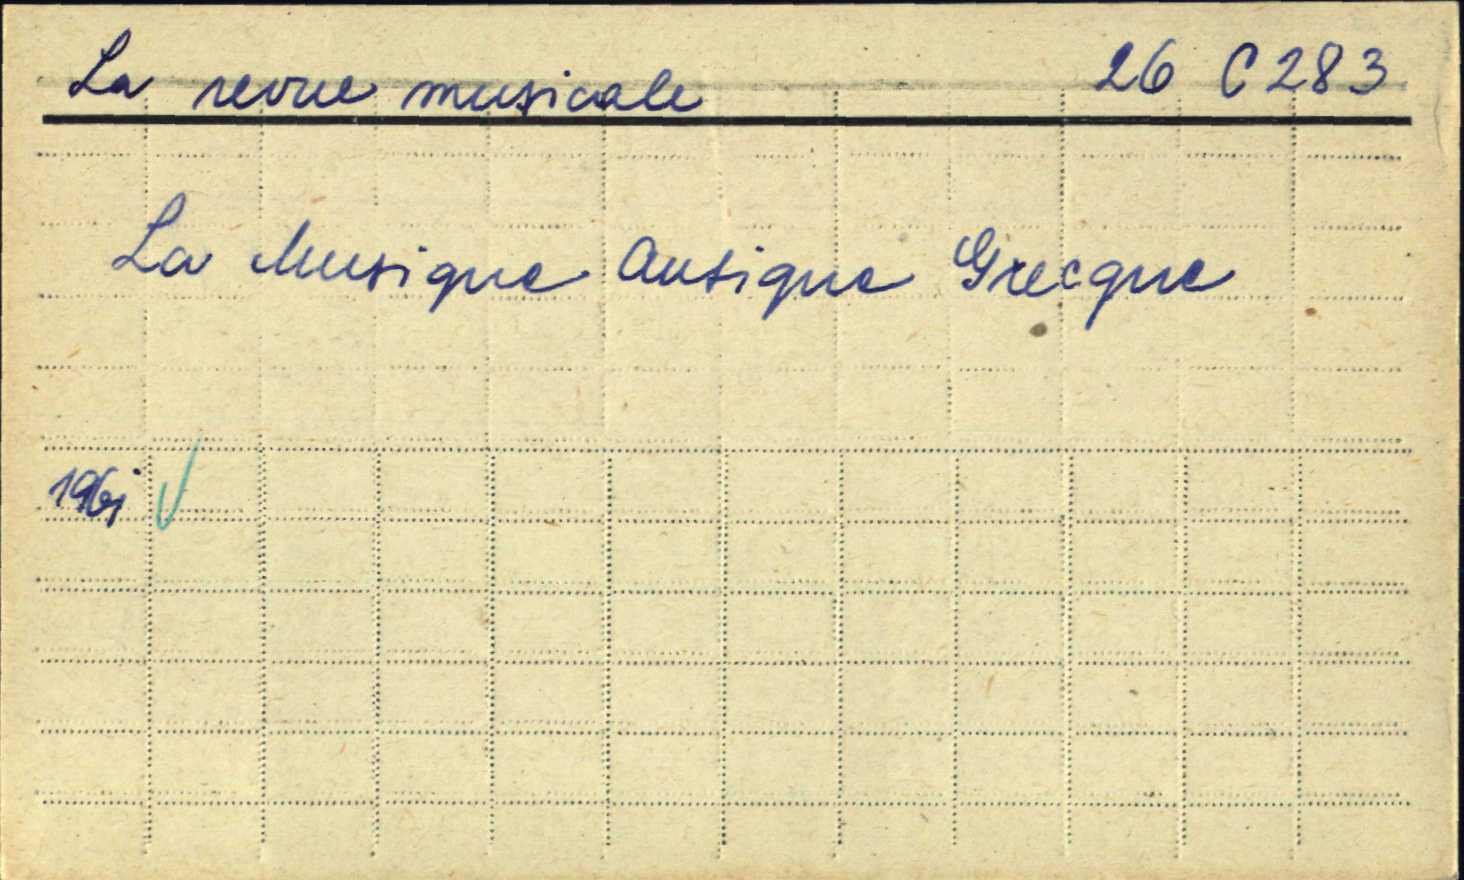 La revue musicale 26 C 283
La Musique Antique Grecque
1961